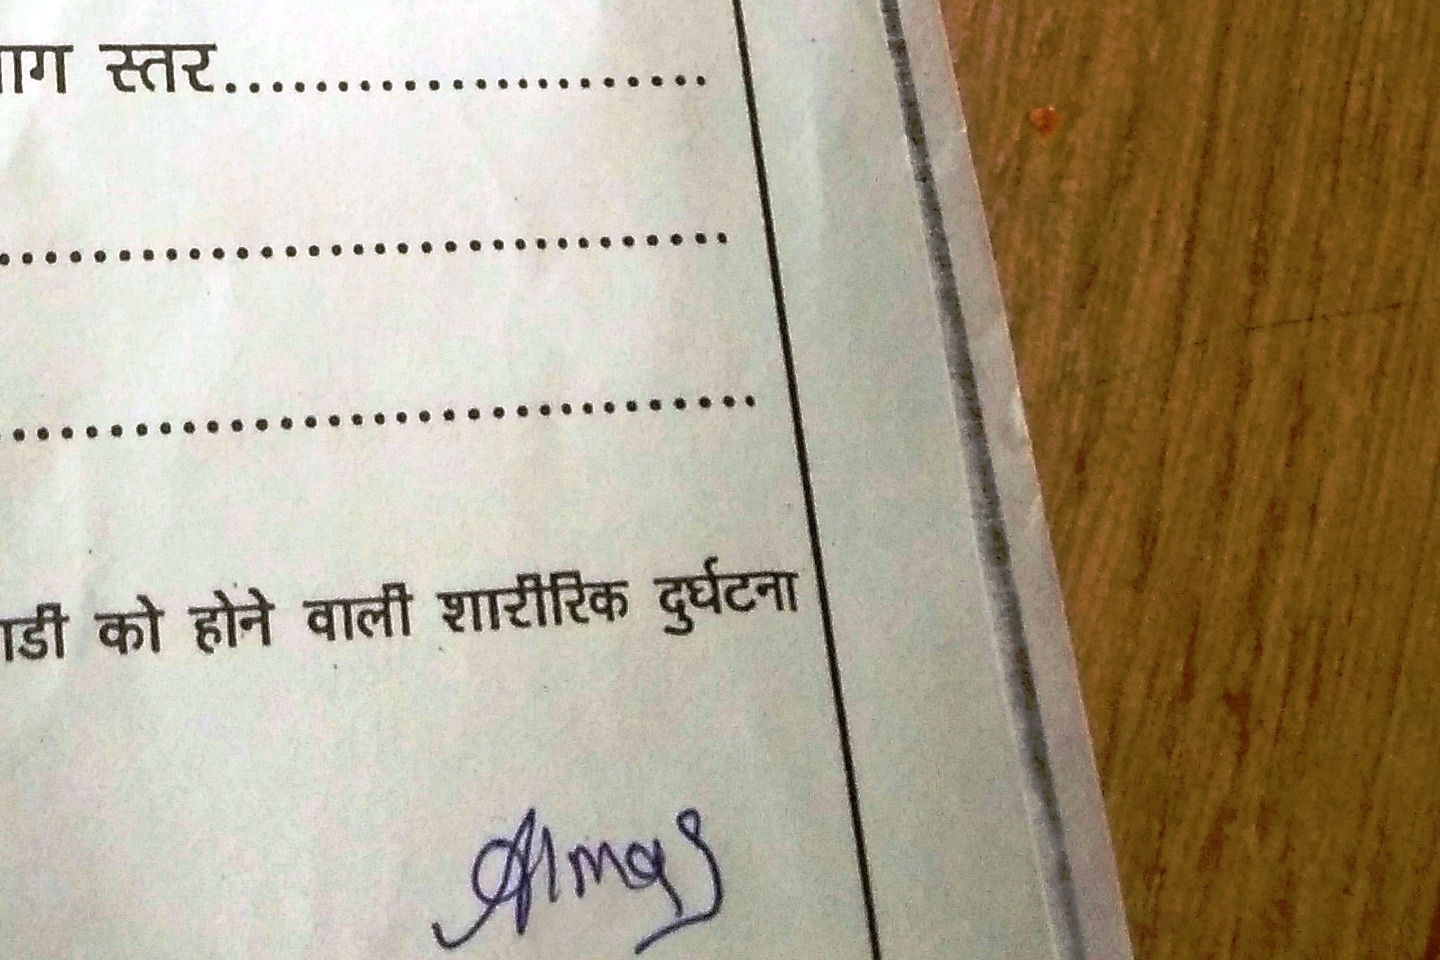 ाग स्तर....................
...............................
...............................
ाडी को होने वाली शारीरिक दुर्घटना
Almas